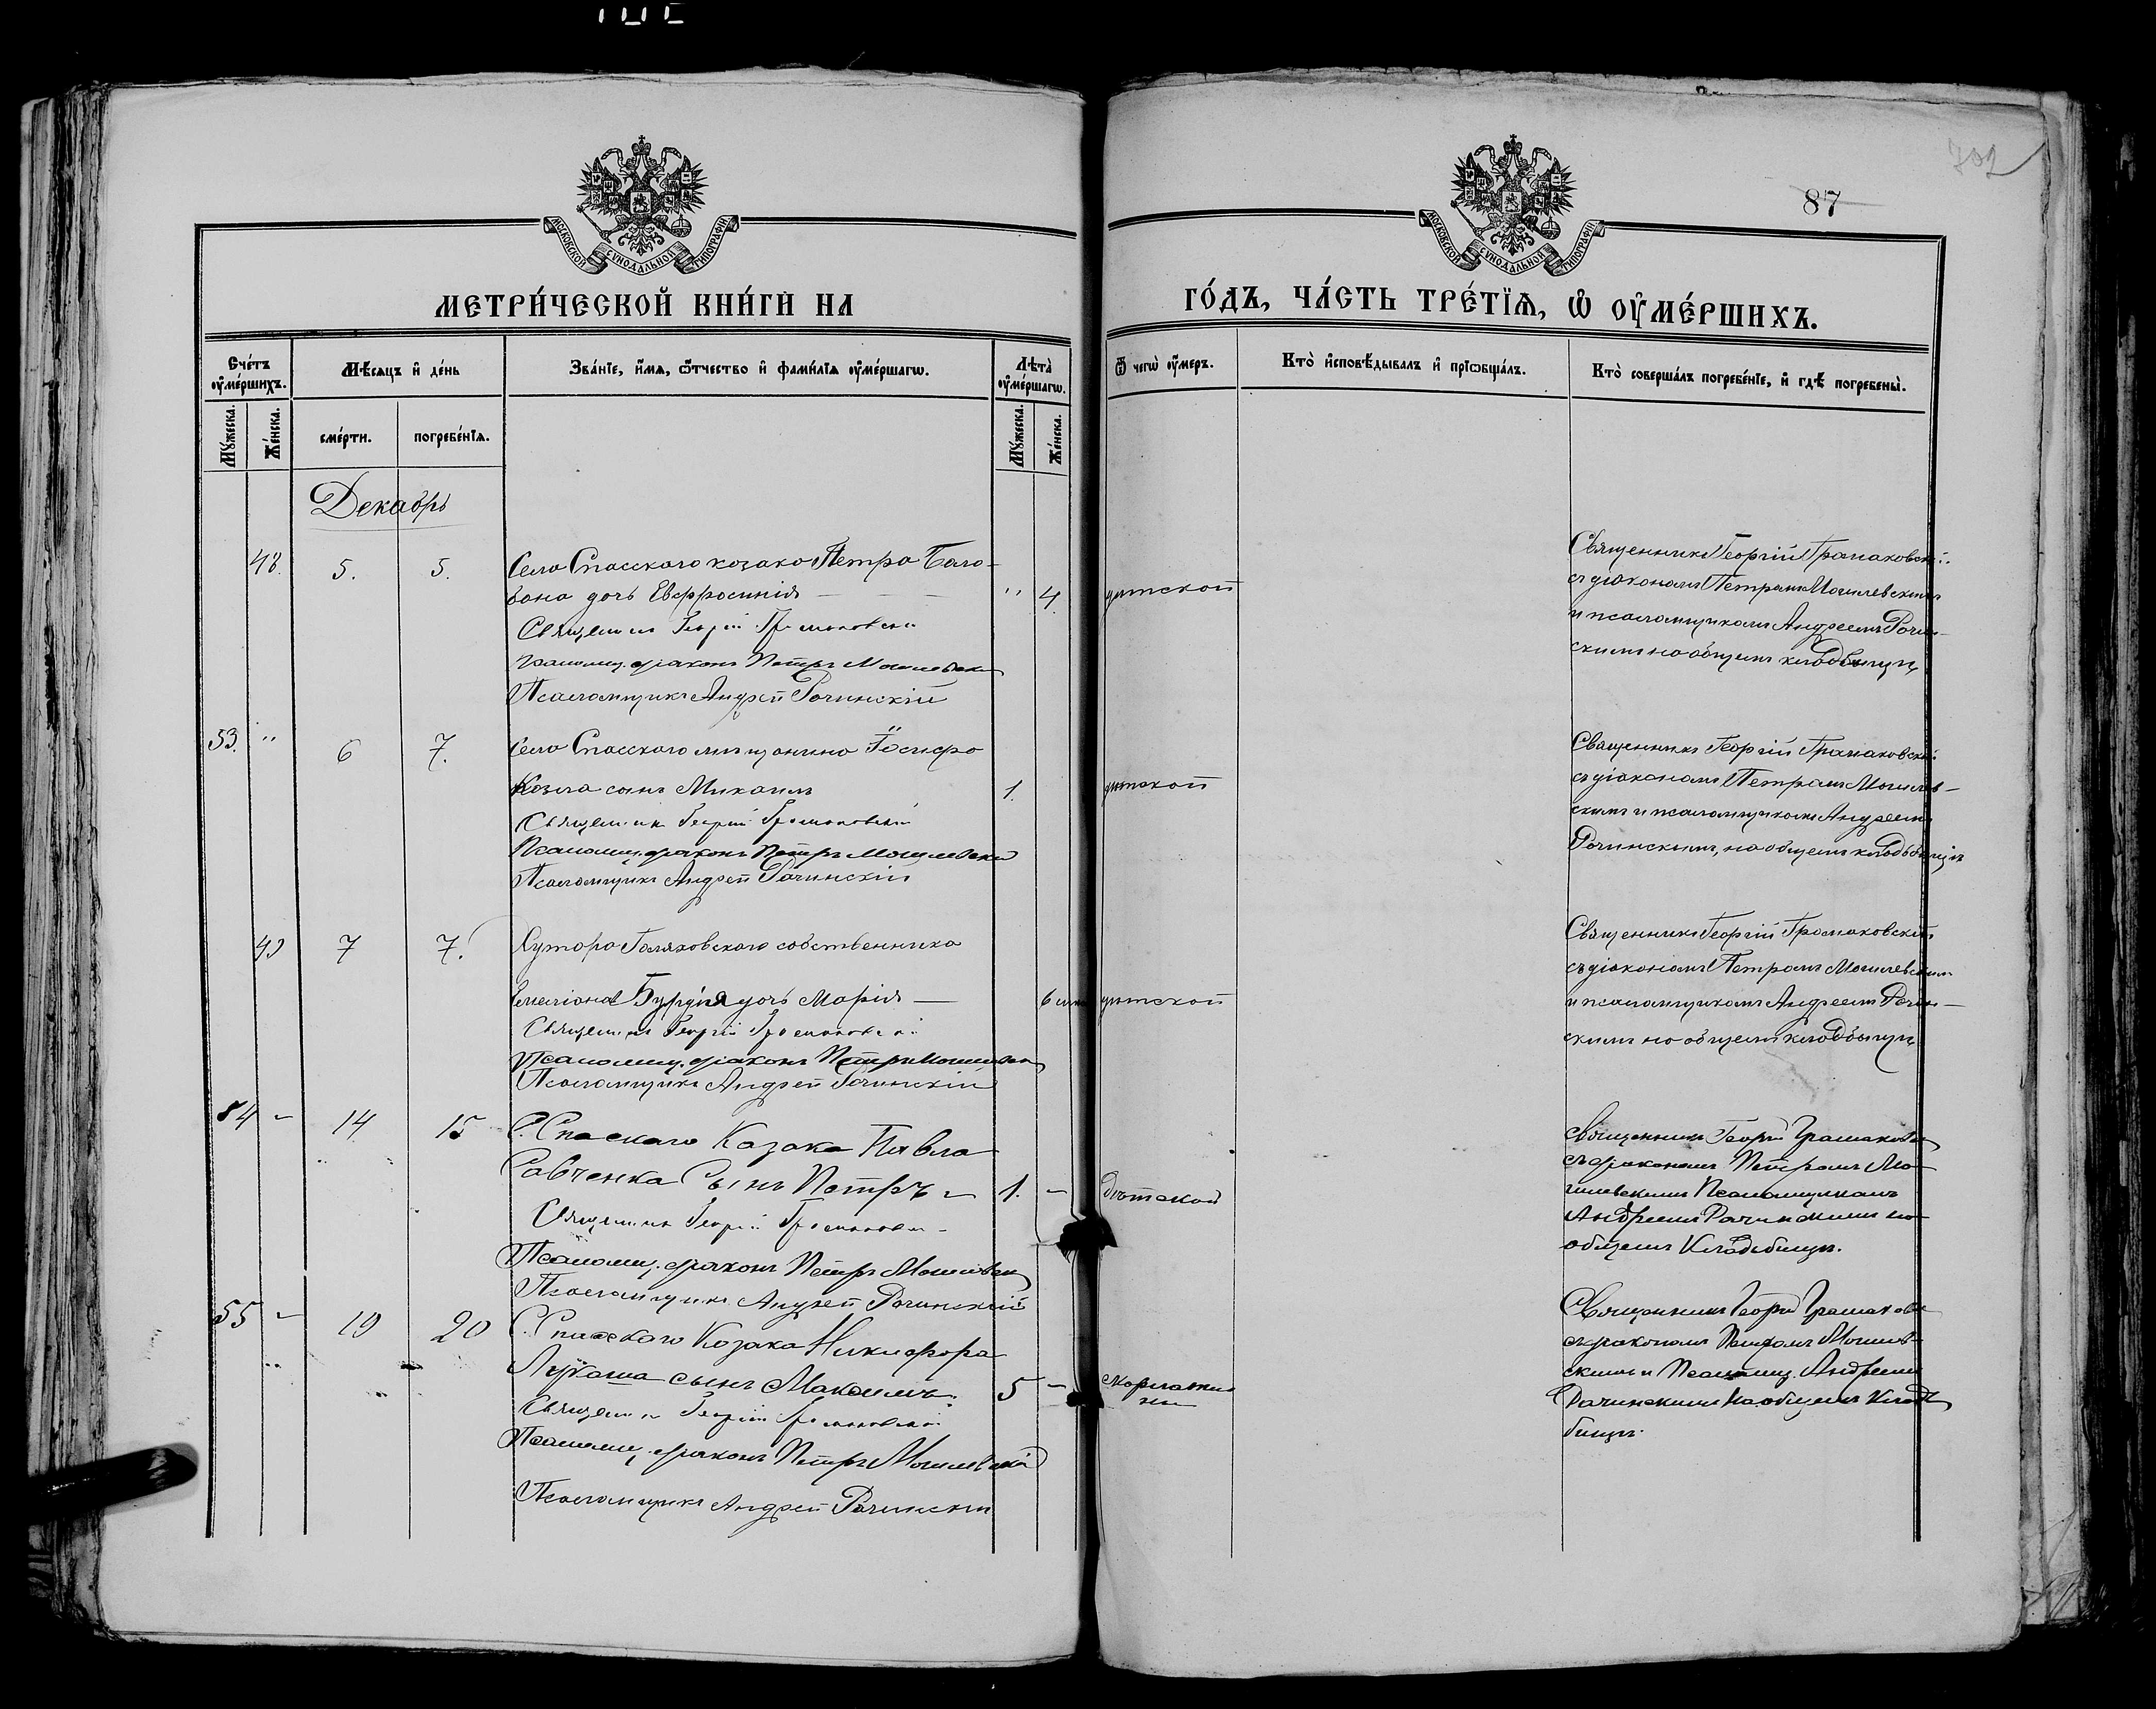 702
87
МОСКОВСКОЙ СѴНОДАЛЬНОЙ ТИПОГРАФІИ
МОСКОВСКОЙ СѴНОДАЛЬНОЙ ТИПОГРАФІИ
МЕТРИ́ЧЕСКОЙ КНИ́ГИ НА
ГО́ДЪ, ЧА́СТЬ ТРЕ́ТЇѦ, Ѡ҆ ОУ҆МЕ́РШИХЪ.
Сче́тъ оу҆ме́ршихъ.
Мѣ́сѧцъ и҆ де́нь
Зва́нїе, и҆́мѧ, ѻ҆́тчество и҆ фамі́лїѧ оу҆ме́ршагѡ.
Лѣ́та оу҆ме́ршагѡ.
Ѿ чегѡ̀ оу҆́меръ.
Кто̀ и҆сповѣ́дывалъ и҆ прїѡбща́лъ.
Кто̀ соверша́лъ погребе́нїе, и҆ гдѣ̀ погребены̀.
Мꙋ́жеска.
Же́нска.
сме́рти.
погребе́нїѧ.
Мꙋ́жеска.
Же́нска.
Декабрь
48. 5. 5.
Села Спасского козака Петра Бало-
вана дочь Евфросинія
" 4.
дѣтской
Священникъ Георгій Грамаковскій
Псаломщ. діаконъ Петръ Могилевскій
Псаломщикъ Андрей Рачинскій
Священникъ Георгій Грамаковскій
съ діакономъ Петромъ Могилевскимъ
и псаломщикомъ Андреемъ Рачин-
скимъ на общемъ кладбищѣ
53. " 6 7.
Села Спасского мѣщанина Іосифа
Козла сынъ Михаилъ
1.
дѣтской
Священникъ Георгій Грамаковскій
Псаломщ. діаконъ Петръ Могилевскій
Псаломщикъ Андрей Рачинскій
Священникъ Георгій Грамаковскій
съ діакономъ Петромъ Могилев-
скимъ и псаломщикомъ Андреемъ
Рачинскимъ, на общемъ кладбищѣ
49 7 7.
Хутора собственника
дочь Марія
6
дѣтской
Священникъ Георгій Грамаковскій
Псаломщ. діаконъ Петръ Могилевскій
Псаломщикъ Андрей Рачинскій
Священникъ Георгій Грамаковскій
съ діакономъ Петромъ Могилевскимъ
и псаломщикомъ Андреемъ Рачин-
скимъ на общемъ кладбищѣ
54 - 14 15
С. Спаского Казака Павла
Савченка Сынъ Петръ
1. -
дѣтской
Священникъ Георгій Грамаковскій
Псаломщ. діаконъ Петръ Могилевскій
Псаломщикъ Андрей Рачинскій
Священникъ Георгій Грамаковскій
съ діакономъ Петромъ Мо-
гилевскимъ Псаломщикомъ
Андреемъ Рачинскимъ на
общемъ Кладбищѣ.
55 - 19 20
С. Спаского Козака Никифора
Лукаша сынъ Максимъ.
5 -
Священникъ Георгій Грамаковскій
Псаломщ. діаконъ Петръ Могилевскій
Псаломщикъ Андрей Рачинскій
Священникъ Георгій Грамаковскій
съ діакономъ Петромъ Могилев-
скимъ и Псаломщ. Андреемъ
Рачинскимъ на общемъ Клад-
бищѣ.